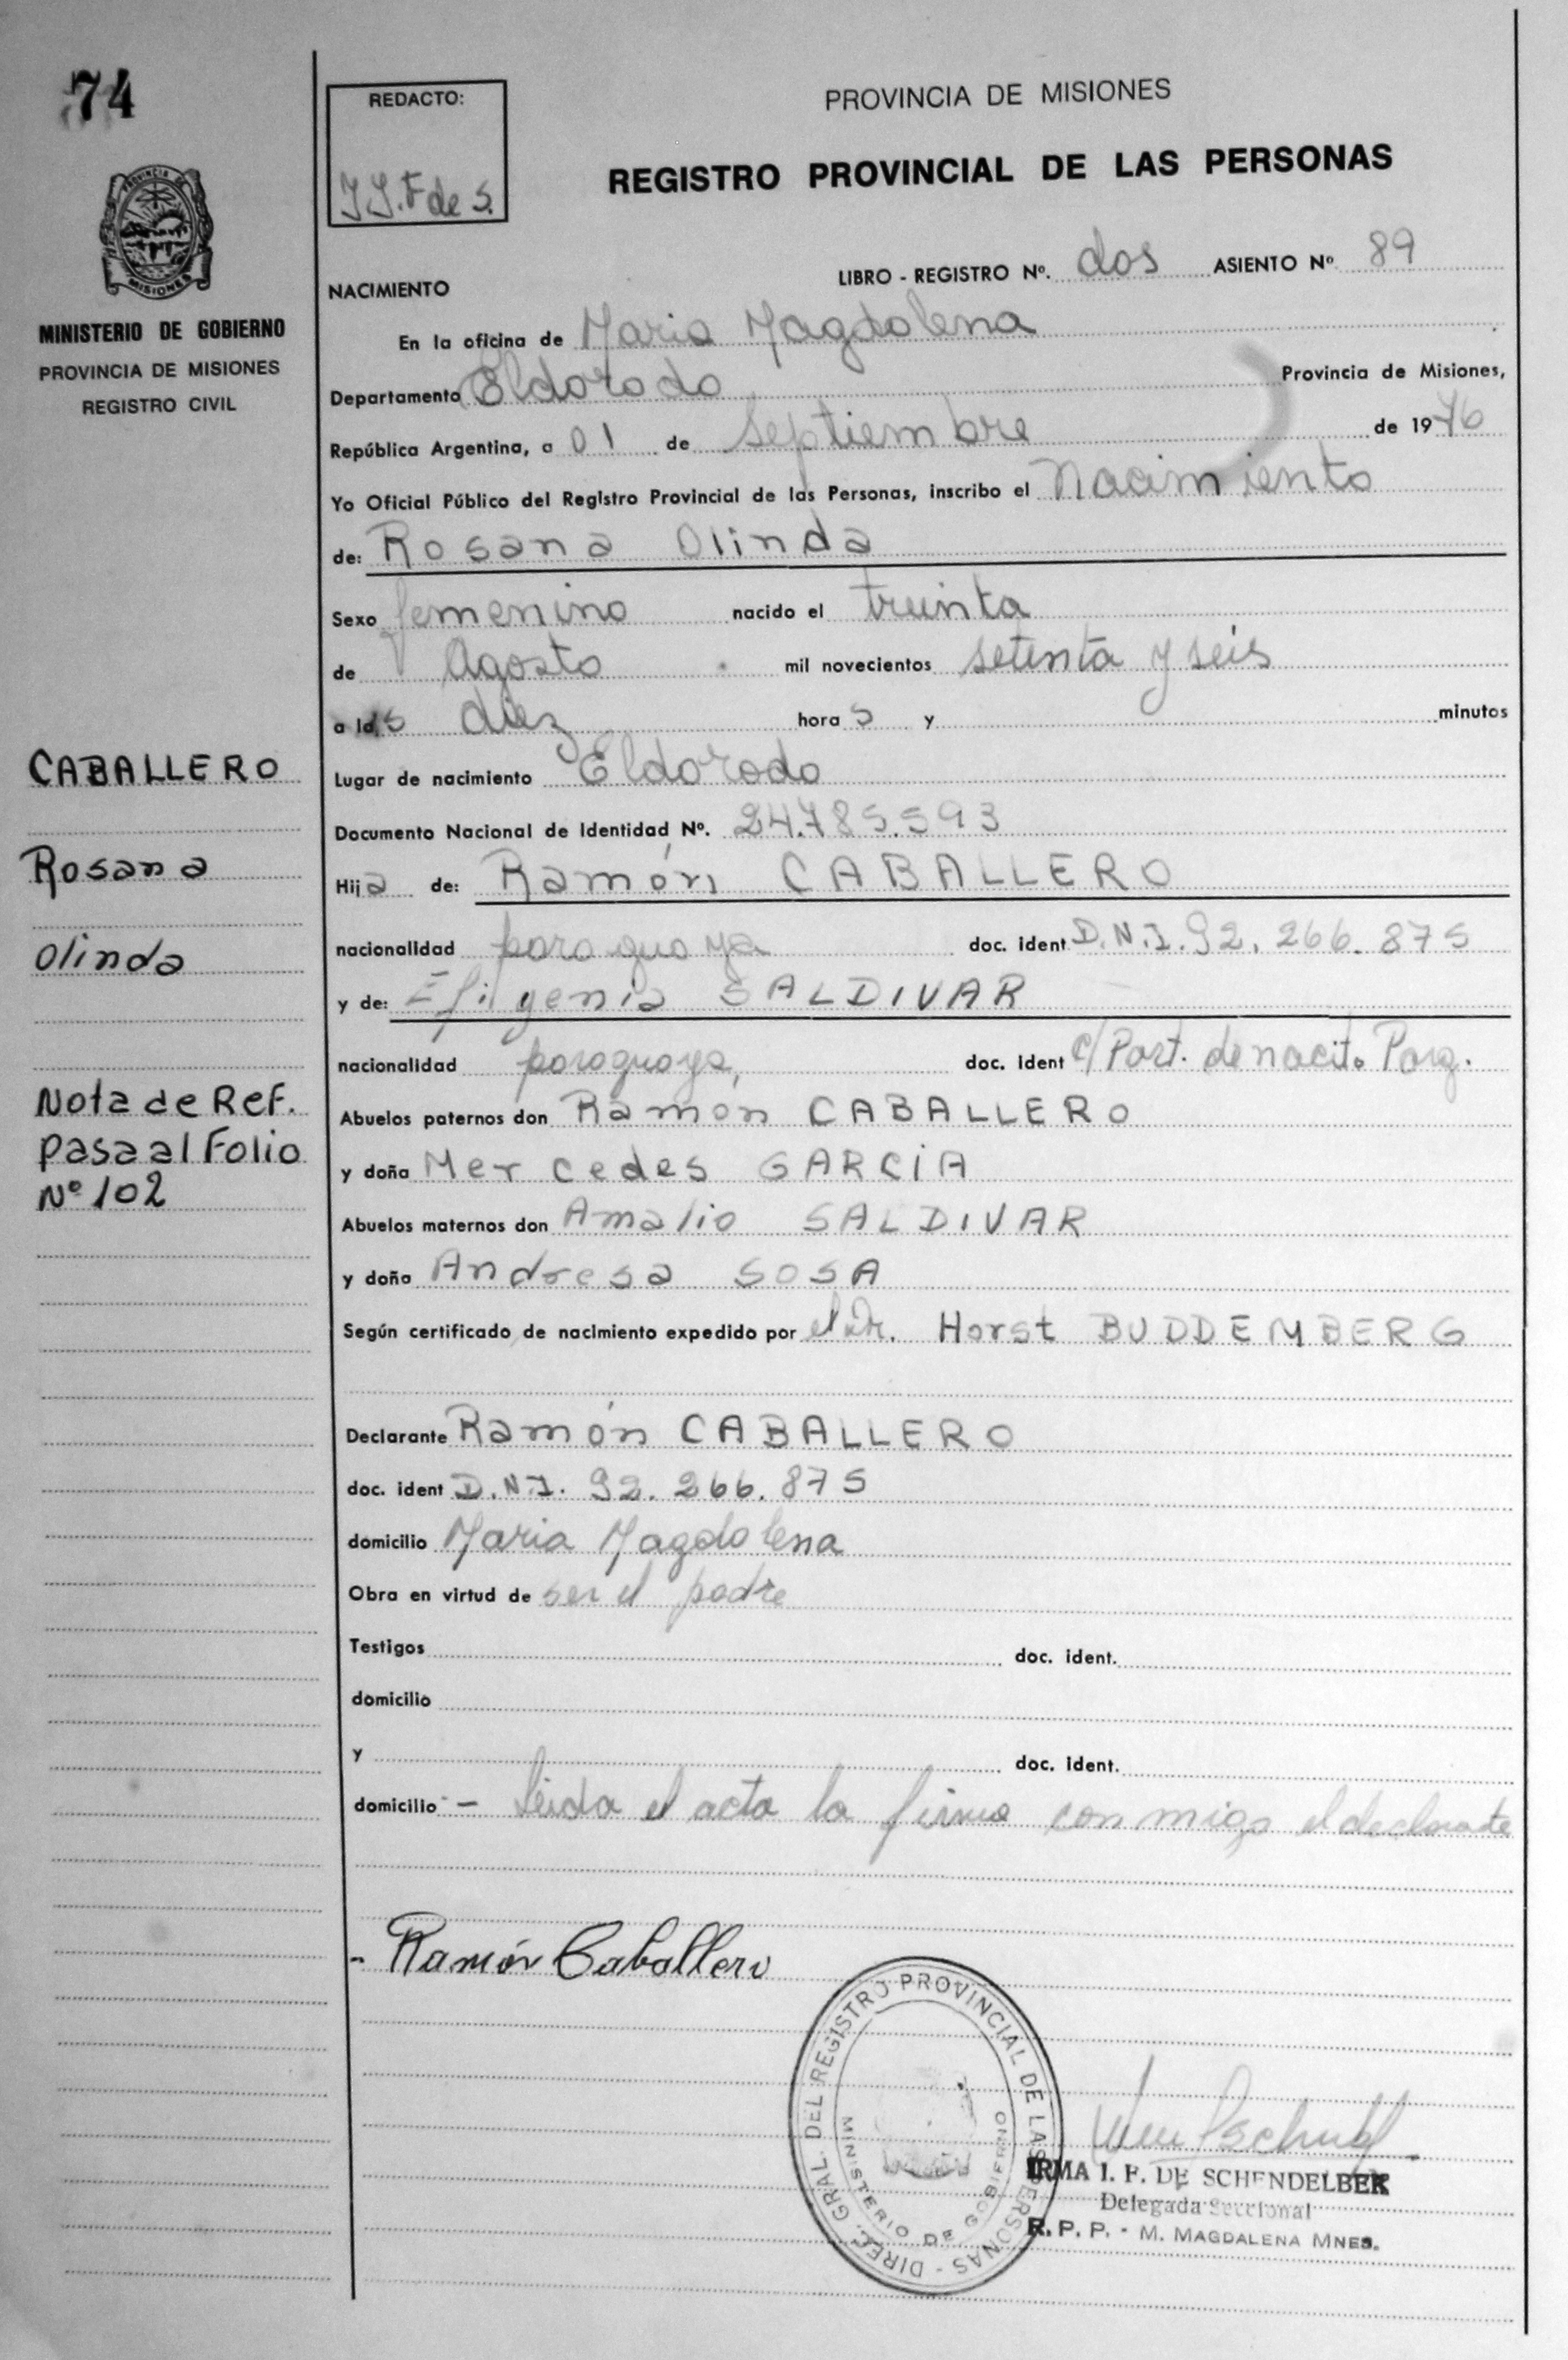 74
PROVINCIA DE MISIONES
MISIONES
MINISTERIO DE GOBIERNO
PROVINCIA DE MISIONES
REGISTRO CIVIL
CABALLERO
Rosana
Olinda
Nota de Ref.
pasa al Folio
Nº 102
REDACTO:
I.I.F de S.
PROVINCIA DE MISIONES
REGISTRO PROVINCIAL DE LAS PERSONAS
LIBRO - REGISTRO Nº. dos ASIENTO Nº 89
NACIMIENTO
En la oficina de Maria Magdalena
Departamento Eldorado Provincia de Misiones,
República Argentina, a 01 de Septiembre de 1976
Yo Oficial Público del Registro Provincial de las Personas, inscribo el Nacimiento
de: Rosana Olinda
Sexo femenino nacido el treinta
de Agosto mil novecientos setenta y seis
a las diez horas y minutos
Lugar de nacimiento Eldorado
Documento Nacional de Identidad Nº. 24.785.593
Hija de: Ramón CABALLERO
nacionalidad paraguaya doc. ident. D.N.I. 92.266.875
y de: Efigenia SALDIVAR
nacionalidad paraguaya, doc. ident c/ Part. de nacito Parg.
Abuelos paternos don Ramón CABALLERO
y doña Mercedes GARCIA
Abuelos maternos don Amalio SALDIVAR
y doña Andresa SOSA
Según certificado de nacimiento expedido por el Dr. Horst BUDDEMBERG
Declarante Ramón CABALLERO
doc. ident D.N.I. 92.266.875
domicilio Maria Magdalena
Obra en virtud de ser el padre
Testigos doc. ident.
domicilio
y doc. ident.
domicilio - Leida el acta la firma conmigo el declarante
- Ramón Caballero
DIREC. GRAL. DEL REGISTRO PROVINCIAL DE LAS PERSONAS -
MINISTERIO DE GOBIERNO
IRMA I. F. DE SCHENDELBEK
Delegada Seccional
R. P. P. - M. MAGDALENA MNES.